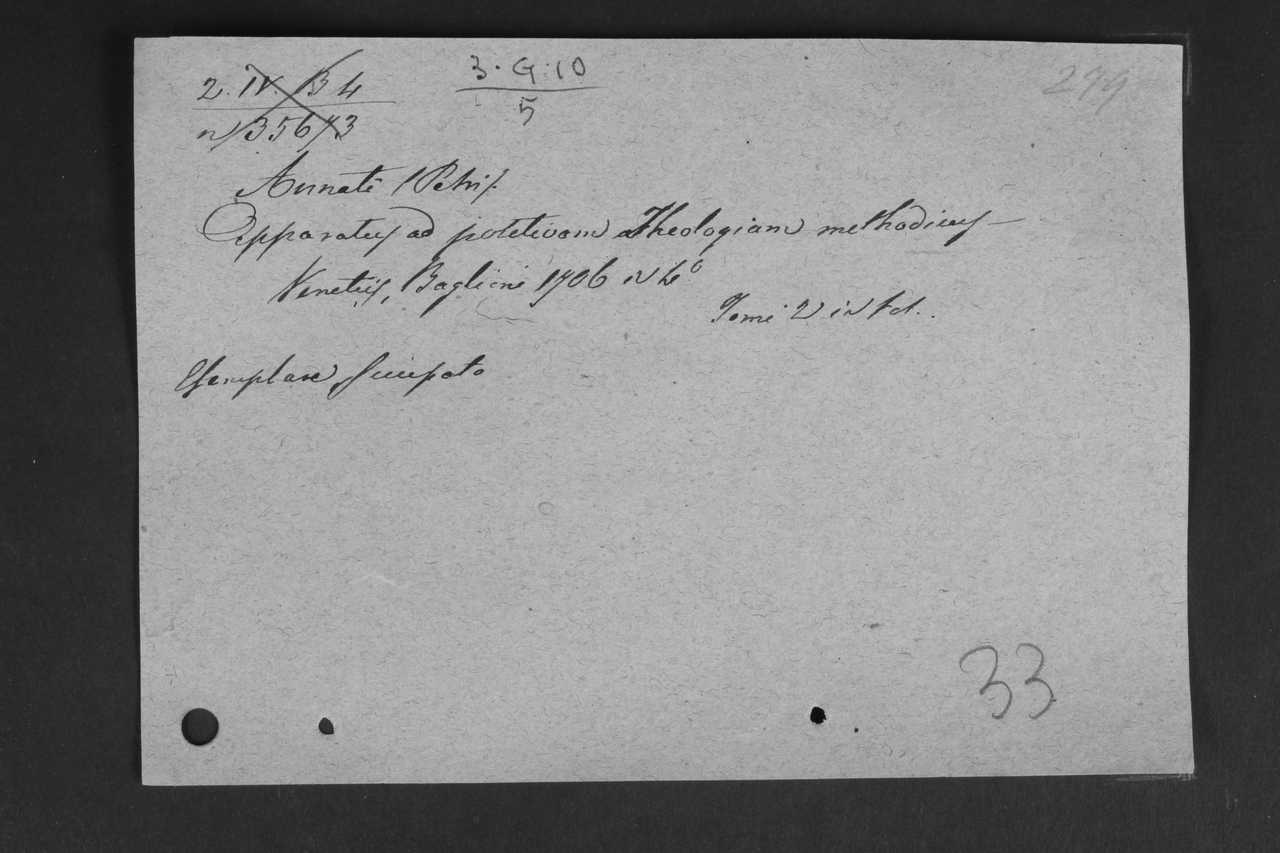 2. IV. B 4
n) 35673
3. G. 10
5
279
Annati (Petri).
Apparatus ad positivam Theologiam methodicus
Venetiis, Baglioni 1706 in 4°
Tomi 2 in fol.
Esemplare sciupato
33